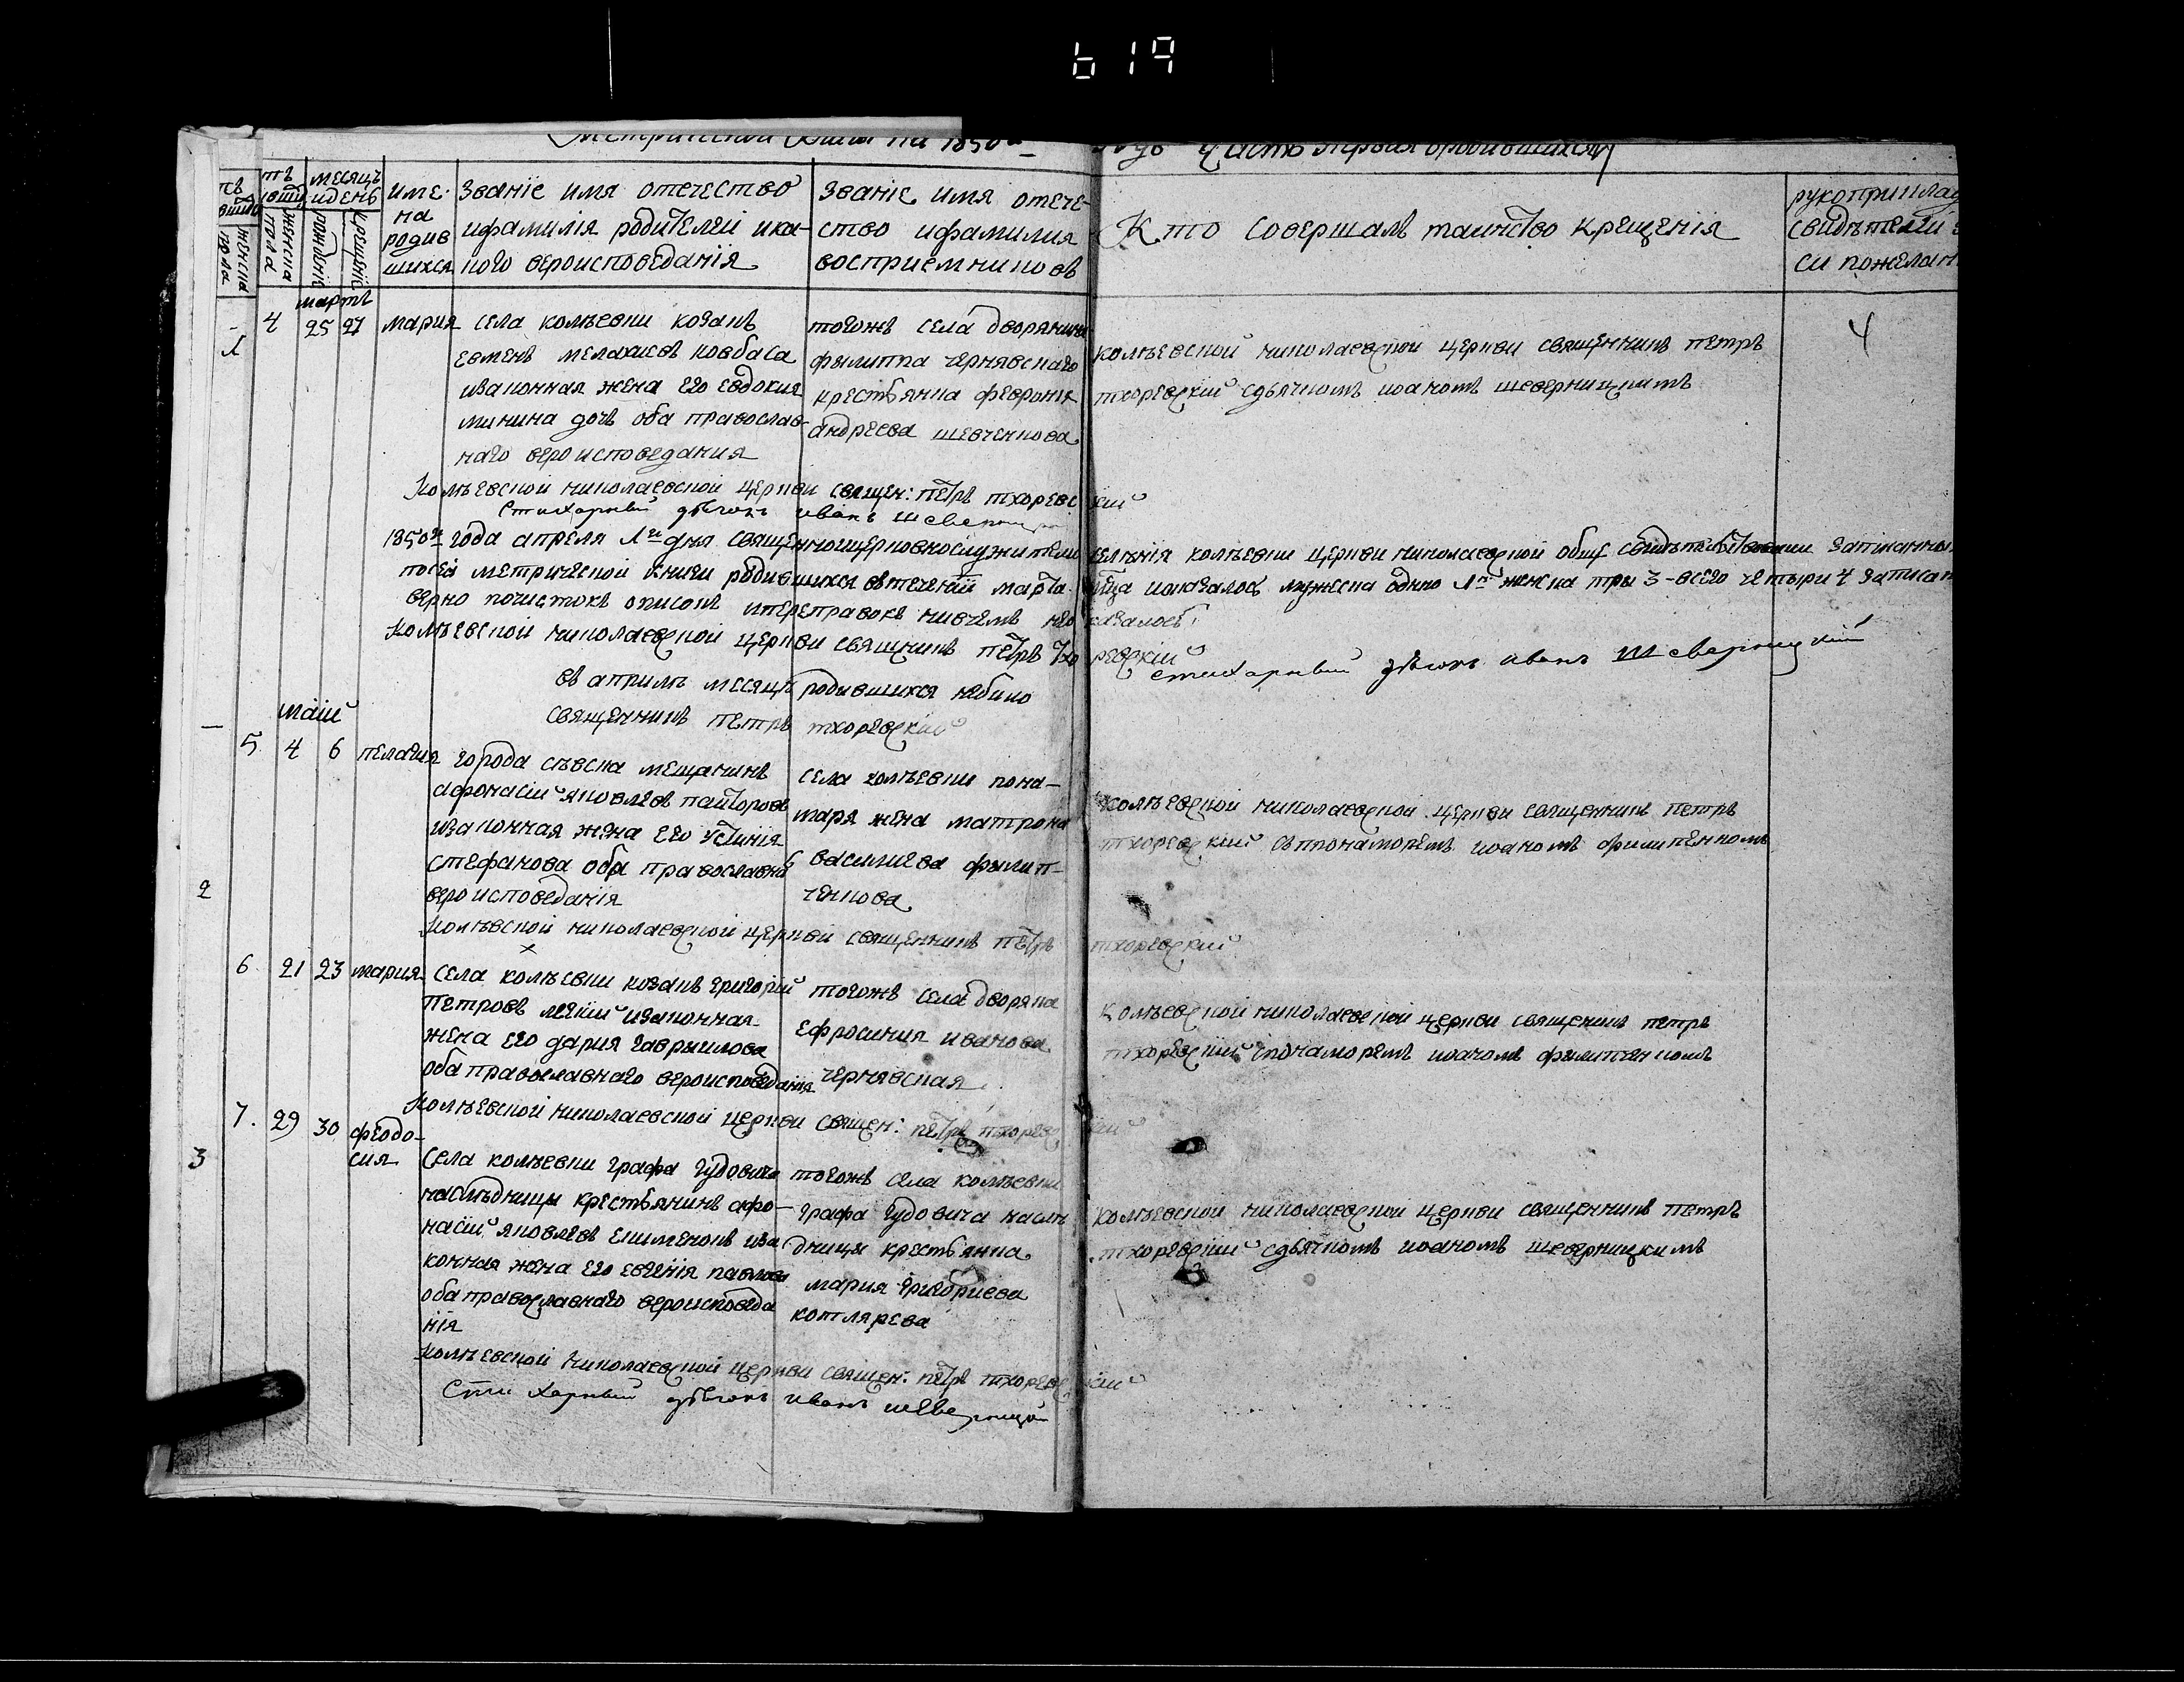 619
Метрической книги на 1850й
годъ Часть первая о родившихся
месяцъ и день
рожденіе
крещеніе
женска пола
женска пола
имена родившихся
Званіе имя отечество
ифамилія родителей ика-
кого вероисповеданія
Званіе имя отече-
ство ифамилия
восприемниковъ
Кто совершалъ таинство крещенія
рукоприклад
свидетелей
си пожелан
мартъ
1
4
25 27
мария
села колъевки козакъ
евменъ мелахиевъ ковбаса
изаконная жена его евдокия
минина дочъ оба православ-
наго вероисповедания
тогожъ села дворянинъ
филиппа чернявскаго
крестьянка феврония
андреева шевченкова
колъевской николаевской церкви священникъ петръ
тхоревскій сдьячкомъ иоаномъ шеверницкимъ
4
Колъевской николаевской церкви священ: петръ тхоревскій
Стихарный дьячокъ иванъ шеверницкій
1850го года апреля 1го дня священноицерковнослужители
колъевки церкви николаевской обще свидетельствовали
посей метрической книги родившихся втеченіи марта
показалось мужеска одинъ 1нъ женска три 3 - всего четыри 4
верно почистокъ описокъ ипереправокъ нивчемъ неоказалось
Колъевской николаевской церкви священикъ петръ тхоревскій
стихарный дьячокъ иванъ шеверницкій
въ априлъ месяцъ родившихся небыло
священникъ петръ тхоревскій
маій
5
4 6
пелагия
города съвска мещанинъ
афонасій яковлевъ
изаконная жена его устинія
стефанова оба православна
вероисповеданія
села колъевки пона-
маря жена матрона
василиева филип-
ченкова
колъевской николаевской церкви священникъ петръ
тхоревскій съпонаморемъ иоаномъ филипенкомъ
2
колъевской николаевской церкви священникъ петръ тхоревскій
6
21 23
мария
села колъевки козакъ григорій
петровъ легкій изаконная
жена его дария гаврыилова
оба православнаго вероисповеданія
тогожъ села дворянка
ефросиния иванова
чернявская
колъевской николаевской церкви священикъ петръ
тхоревскій спонаморемъ иоаномъ филипенкомъ
Колъевской николаевской церкви священ: петръ тхоревскій
7.
29 30
феодо-
сия
3
села колъевки графа гудовича
наследницы крестьянинъ афо-
насій яковлевъ иза
конная жена его евгенія павлова
оба православнаго вероисповеда
нія
тогожъ села колъевки
графа гудовича наслъ
дницы крестьянка
мария григориева
котлярева
колъевской николаевской церкви священникъ петръ
тхоревскій сдьячкомъ иоаномъ шеверницкимъ
колъевской николаевской церкви священ: петръ тхоревскій
Стихарный дьячокъ иванъ шеверницкій